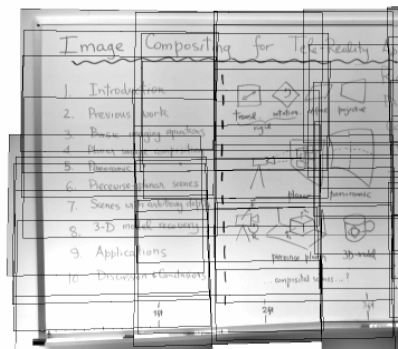 Image Compositing for Tele-Reality
1. Introduction
2. Previous work
3. Basic imaging equations
4. Planar image compositing
5. Panoramic "
6. Piecewise-planar scenes
7. Scenes with arbitrary depth
8. 3-D model recovery
9. Applications
10. Discussion & Conclusions
transl rotation affine projective
rigid
planar panoramic
piecewise planar 3D model
... composited scenes...?
1ft 2ft